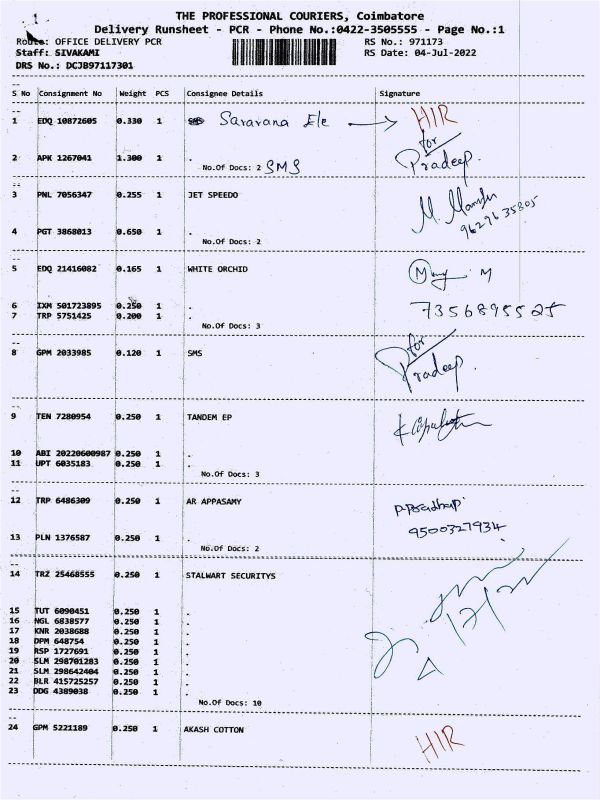 1
THE PROFESSIONAL COURIERS, Coimbatore
Delivery Runsheet - PCR - Phone No.:0422-3505555 - Page No.:1
Route: OFFICE DELIVERY PCR RS No.: 971173
Staff: SIVAKAMI RS Date: 04-Jul-2022
DRS No.: DCJB97117301
S No Consignment No Weight PCS Consignee Details Signature
1 EDQ 10872605 0.330 1 Saravana Ele → HIR
2 APK 1267041 1.300 1 . for Pradeep.
No.Of Docs: 2 SMS
3 PNL 7056347 0.255 1 JET SPEEDO M.
9629635805
4 PGT 3868013 0.650 1 .
No.Of Docs: 2
5 EDQ 21416082 0.165 1 WHITE ORCHID M
6 IXM 501723895 0.250 1 . 7356895525
7 TRP 5751425 0.200 1 .
No.Of Docs: 3
8 GPM 2033985 0.120 1 SMS for Pradeep.
9 TEN 7280954 0.250 1 TANDEM EP
10 ABI 20220600987 0.250 1 .
11 UPT 6035183 0.250 1 .
No.Of Docs: 3
12 TRP 6486309 0.250 1 AR APPASAMY
9500327934
13 PLN 1376587 0.250 1 .
No.Of Docs: 2
14 TRZ 25468555 0.250 1 STALWART SECURITYS
15 TUT 6090451 0.250 1 .
16 NGL 6838577 0.250 1 .
17 KNR 2038688 0.250 1 .
18 DPM 648754 0.250 1 .
19 RSP 1727691 0.250 1 .
20 SLM 298701283 0.250 1 .
21 SLM 298642404 0.250 1 .
22 BLR 415725257 0.250 1 .
23 DDG 4389038 0.250 1 .
No.Of Docs: 10
24 GPM 5221189 0.250 1 AKASH COTTON HIR